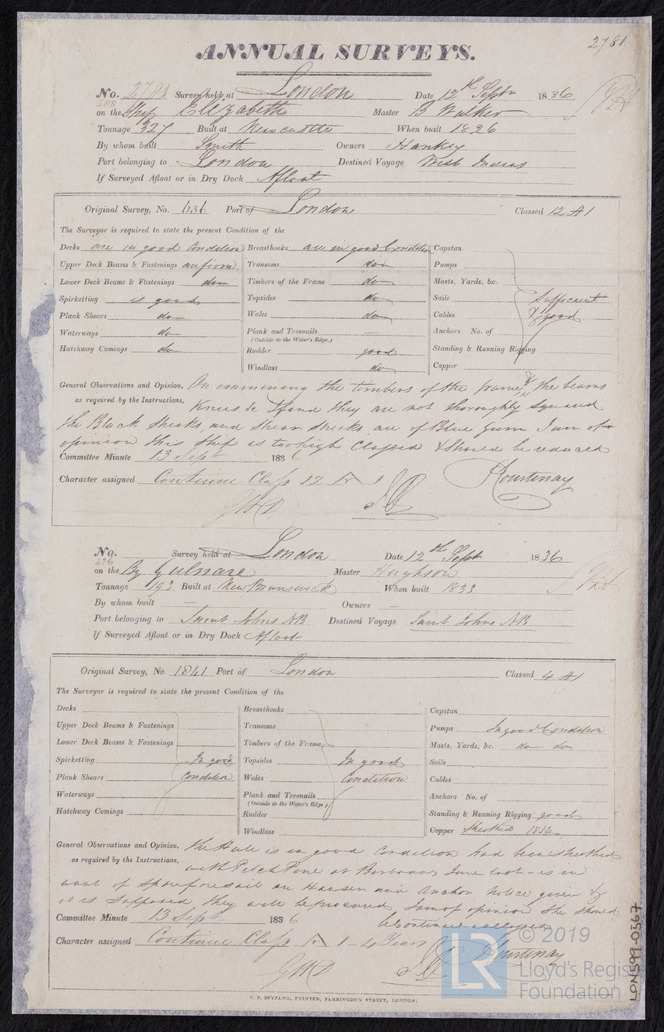 2781
ANNUAL SURVEYS.
No. 2781 Survey held at London Date 12th Septr 1836
on the Ship Elizabeth Master B Walker
Tonnage 327 Built at Newcastle When built 1826
By whom built Smith Owners Hankey
Port belonging to London Destined Voyage West Indies
If Surveyed Afloat or in Dry Dock Afloat
Original Survey, No. 636 Port of London Classed 12 A1
The Surveyor is required to state the present Condition of the
Decks are in good Condition Breasthooks are in good Condition Capstan
Upper Deck Beams & Fastenings are firm Transoms do Pumps
Lower Deck Beams & Fastenings do Timbers of the Frame do Masts, Yards, &c.
Spirketting is good Topsides do Sails Sufficient
Plank Shears do Wales do Cables & good
Waterways do Plank and Treenails Anchors No. of
(Outside to the Water's Edge.)
Hatchway Comings do Rudder good Standing & Running Rigging
Windlass do Copper
General Observations and Opinion, On examining the timbers of the frame & the beams
as required by the Instructions, Knees &c I find they are not thoroughly squared
the Black Strakes, and Shear Strakes are of Blue Gum I am of
opinion this Ship is too high Classed & should be reduced
Committee Minute 13 Sept 1836
Character assigned Continue Class 12 A 1 Courtenay
No. Survey held at London Date 12th Sept 1836
on the Bg Gulnare Master Hughson
Tonnage 193 Built at New Brunswick When built 1833
By whom built Owners
Port belonging to Saint Johns NB Destined Voyage Saint Johns NB
If Surveyed Afloat or in Dry Dock Afloat
Original Survey, No. 1841 Port of London Classed 4 A1
The Surveyor is required to state the present Condition of the
Decks Breasthooks Capstan
Upper Deck Beams & Fastenings Transoms Pumps In good Condition
Lower Deck Beams & Fastenings Timbers of the Frame Masts, Yards, &c. do do
Spirketting In good Topsides In good Sails
Plank Shears Condition Wales Condition Cables
Waterways Plank and Treenails Anchors No. of
(Outside to the Water's Edge.)
Hatchway Comings Rudder Standing & Running Rigging good
Windlass Copper Sheathed 1836
General Observations and Opinion, The Hull is in good Condition had been sheathed
as required by the Instructions, with Pitch Pine at is in
want of Spare foresail an Hawser and Anchor Notice given &
it is supposed they will be procured I am of opinion She should
be Continued as classed
Committee Minute 13 Sept 1836
Character assigned Continue Class A 1 - 4 Years Courtenay
G. F. SEYFANG, PRINTER, FARRINGDON STREET, LONDON.
LON599-0367
LR © 2019
Lloyd's Register
Foundation